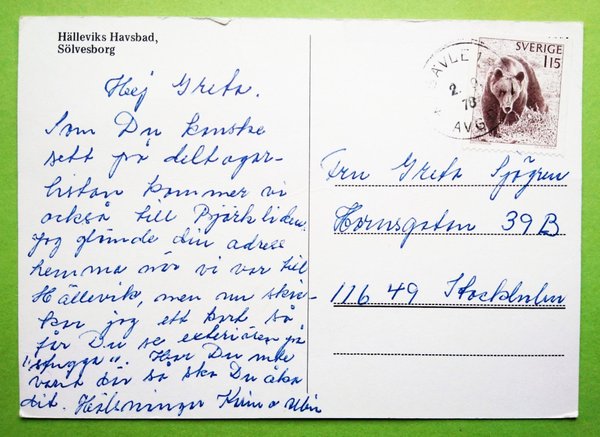 Hälleviks Havsbad,
Sölvesborg
Hej Greta.
Som Du kanske
sett på deltagar-
listan kommer vi
också till Björkliden.
Jag glömde din adress
hemma när vi var till
Hällevik, men nu skic-
kar jag ett kort så
får Du se exteriören på
"stugga". Har Du inte
varit där så ska Du åka
dit. Hälsningar
SVERIGE
115
GÄVLE 1
2. 9.
78
AVG
Fru Greta Sjögren
Hornsgatan 39 B
116 49 Stockholm